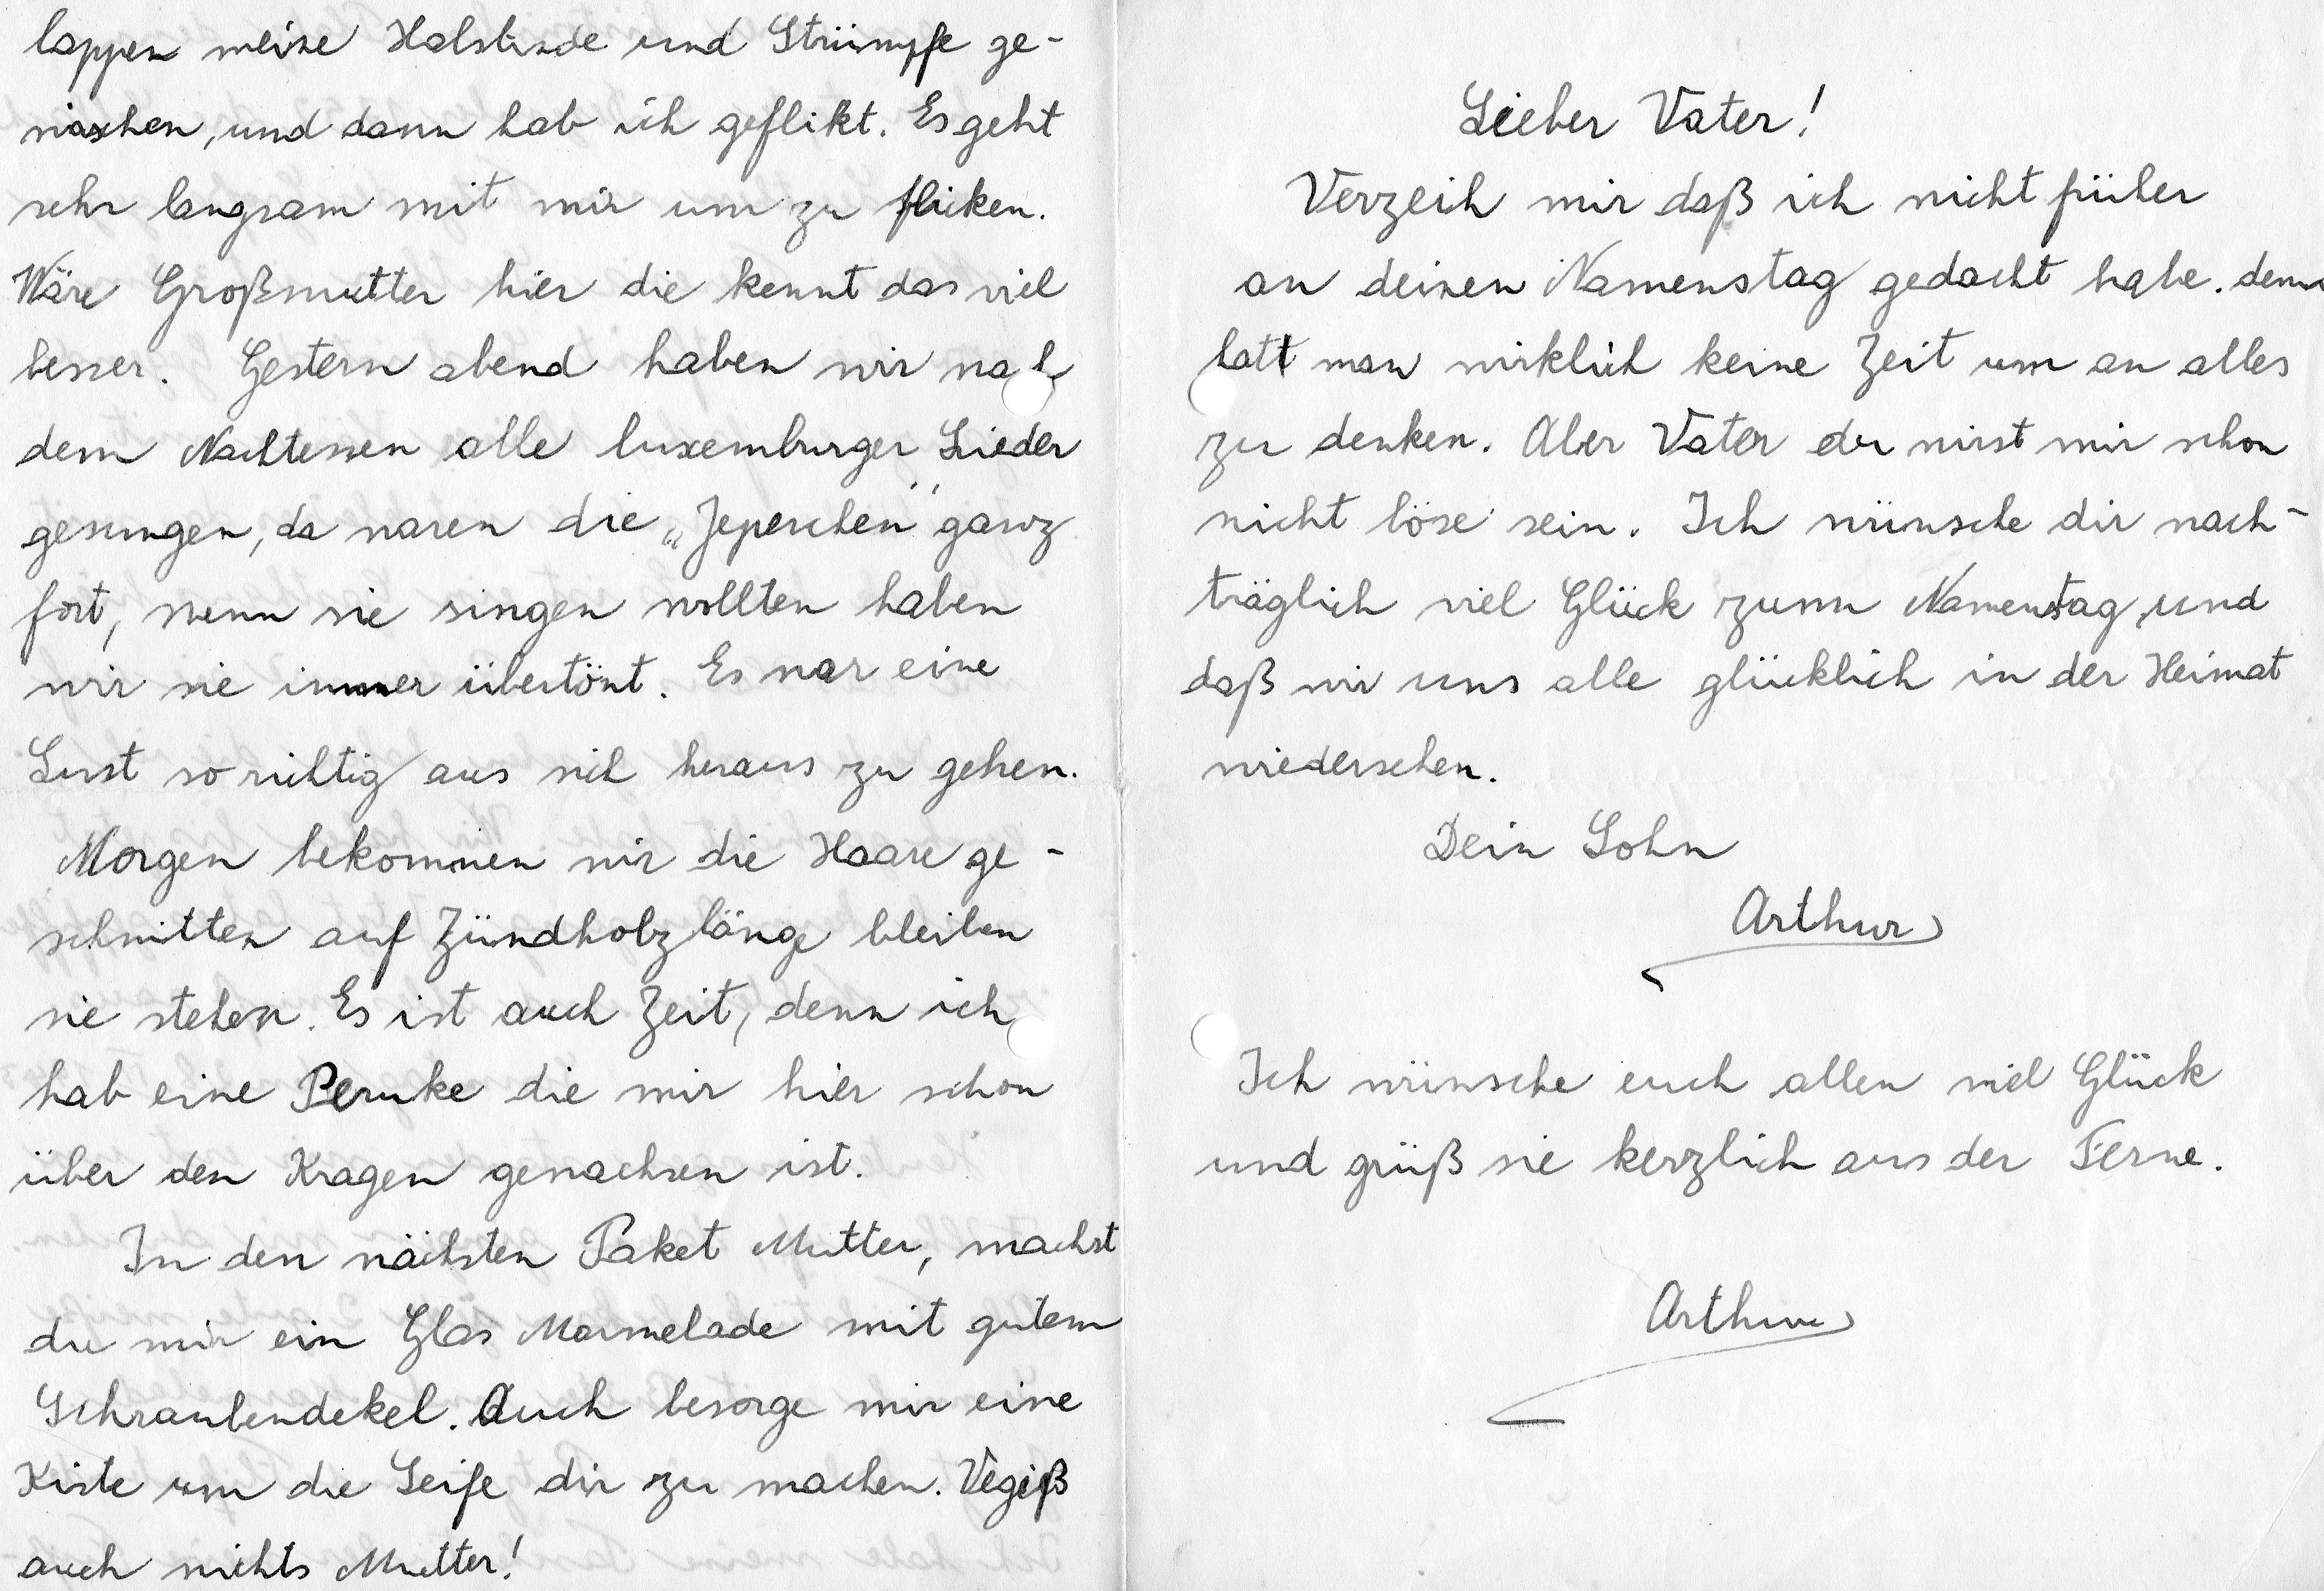 lappen meine Halsbinde und Strümpfe ge-
waschen, und dann hab ich geflikt. Es geht
sehr langsam mit mir um zu flicken.
Wäre Großmutter hier die kennt das viel
besser. Gestern abend haben wir nach
dem Nachtessen alle luxemburger Lieder
gesungen, da waren die „Jeperchen" ganz
fort, wenn sie singen wollten haben
wir sie immer übertönt. Es war eine
Lust so richtig aus sich heraus zu gehen.
Morgen bekommen wir die Haare ge-
schnitten auf Zündholzlänge bleiben
sie stehen. Es ist auch Zeit, denn ich
hab eine Peruke die mir hier schon
über den Kragen gewachsen ist.
In den nächsten Paket Mutter, machst
du mir ein Glas Marmelade mit gutem
Schraubendekel. Auch besorge mir eine
Kiste um die Seife dir zu machen. Vegiß
auch nichts Mutter!
Lieber Vater!
Verzeih mir daß ich nicht früher
an deinen Namenstag gedacht habe. denn
hatt man wirklich keine Zeit um an alles
zu denken. Aber Vater du wirst mir schon
nicht böse sein. Ich wünsche dir nach-
träglich viel Glück zum Namenstag und
daß wir uns alle glücklich in der Heimat
wiedersehen.
Dein Sohn
Arthur
Ich wünsche euch allen viel Glück
und grüß sie herzlich aus der Ferne.
Arthur